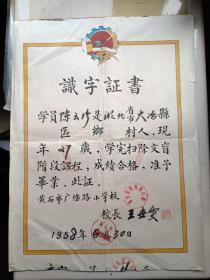 識字証書
學員陈玄珍是湖北省市大冶縣
區鄉村人，現
年27歲，學完扫除文盲
階段課程，成績合格，准予
畢業，此証。
黄石市广场路小学校
校長王世雯
1958年6月30日